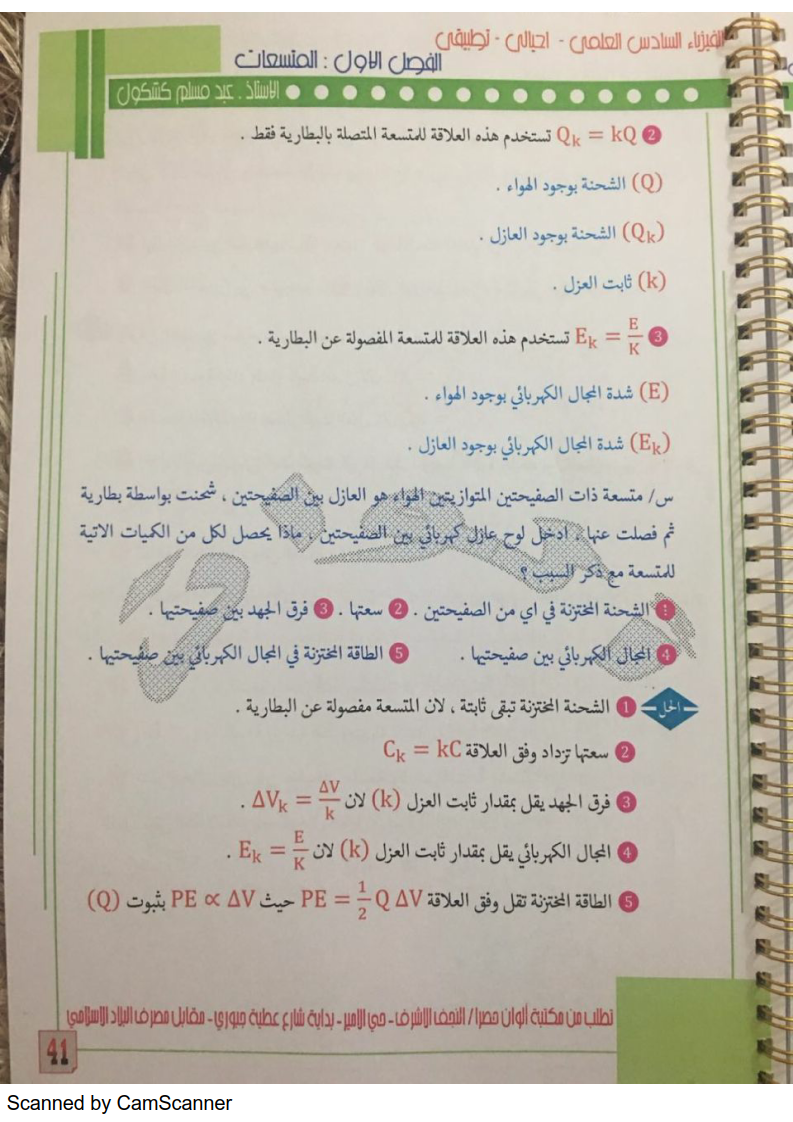 الفيزياء السادس العلمي - احيائي - تطبيقي
الفصل الاول : المتسعات
الاستاذ . عبد مسلم كشكول
2 Qk = kQ تستخدم هذه العلاقة للمتسعة المتصلة بالبطارية فقط .
(Q) الشحنة بوجود الهواء .
(Qk) الشحنة بوجود العازل .
(k) ثابت العزل .
3 Ek = E/K تستخدم هذه العلاقة للمتسعة المفصولة عن البطارية .
(E) شدة المجال الكهربائي بوجود الهواء .
(Ek) شدة المجال الكهربائي بوجود العازل .
س/ متسعة ذات الصفيحتين المتوازيتين الهواء هو العازل بين الصفيحتين ، شحنت بواسطة بطارية
ثم فصلت عنها ، ادخل لوح عازل كهربائي بين الصفيحتين ، ماذا يحصل لكل من الكميات الاتية
للمتسعة مع ذكر السبب ؟
1 الشحنة المختزنة في اي من الصفيحتين . 2 سعتها . 3 فرق الجهد بين صفيحتيها .
4 المجال الكهربائي بين صفيحتيها . 5 الطاقة المختزنة في المجال الكهربائي بين صفيحتيها .
الحل 1 الشحنة المختزنة تبقى ثابتة ، لان المتسعة مفصولة عن البطارية .
2 سعتها تزداد وفق العلاقة Ck = kC
3 فرق الجهد يقل بمقدار ثابت العزل (k) لان ΔVk = ΔV/k .
4 المجال الكهربائي يقل بمقدار ثابت العزل (k) لان Ek = E/K .
5 الطاقة المختزنة تقل وفق العلاقة PE = 1/2 Q ΔV حيث PE ∝ ΔV بثبوت (Q)
تطلب من مكتبة ألوان حصرا / النجف الاشرف - حي الامير - بداية شارع عطية جبوري - مقابل مصرف البلاد الاسلامي
41
Scanned by CamScanner